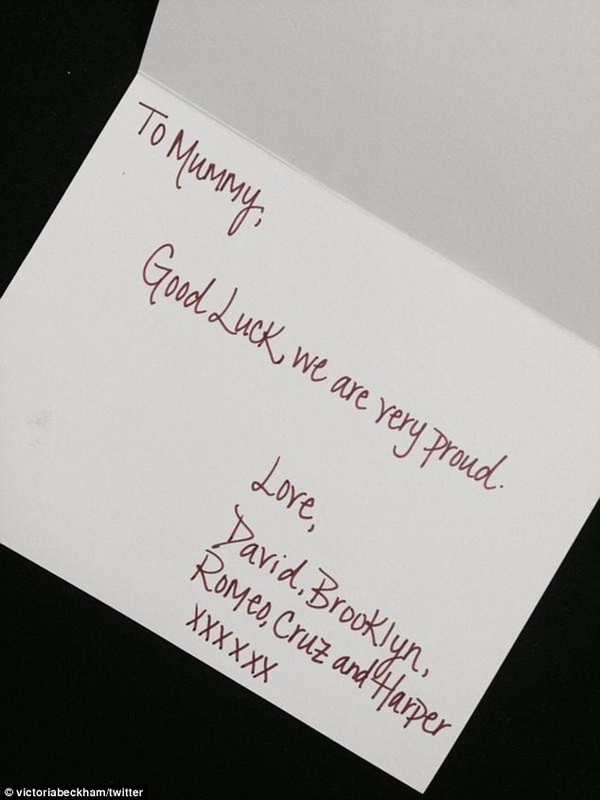 To Mummy,
Good Luck, we are very proud.
Love,
David, Brooklyn,
Romeo, Cruz and Harper
xxxxxx
© victoriabeckham/twitter